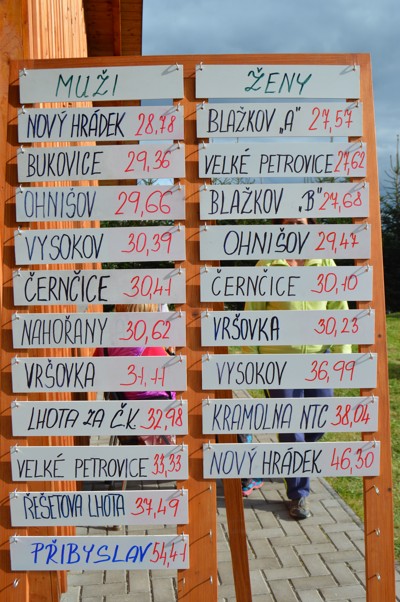 MUŽI
NOVÝ HRÁDEK 28,78
BUKOVICE 29,36
OHNIŠOV 29,66
VYSOKOV 30,39
ČERNČICE 30,41
NAHOŘANY 30,62
VRŠOVKA 31,11
LHOTA ZA Č.K. 32,98
VELKÉ PETROVICE 33,33
ŘEŠETOVA LHOTA 37,49
PŘIBYSLAV 54,41
ŽENY
BLAŽKOV „A" 27,57
VELKÉ PETROVICE 27,62
BLAŽKOV „B" 27,68
OHNIŠOV 29,47
ČERNČICE 30,10
VRŠOVKA 30,23
VYSOKOV 36,99
KRAMOLNA NTC 38,04
NOVÝ HRÁDEK 46,30